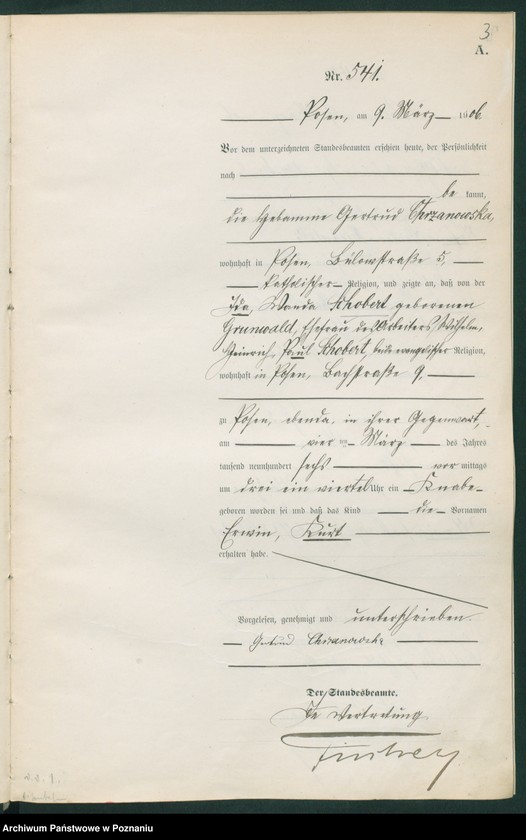 3
A.
Nr. 541.
Posen, am 9. März 1906.
Vor dem unterzeichneten Standesbeamten erschien heute, der Persönlichkeit
nach
be kannt,
die Hebamme Gertrud Chrzanowska,
wohnhaft in Posen, Bülowstraße 5,
katholischer Religion, und zeigte an, daß von der
Ida, Wanda Schobert geborenen
Grunwald, Ehefrau des Arbeiters Wilhelm,
Heinrich, Paul Schobert, beide evangelischer Religion,
wohnhaft in Posen, Bachstraße 9,
zu Posen, ebenda, in ihrer Gegenwart,
am vier ten März des Jahres
tausend neunhundert sechs vor mittags
um drei ein viertel Uhr ein Knabe
geboren worden sei und daß das Kind die Vornamen
Erwin, Kurt
erhalten habe.
Vorgelesen, genehmigt und unterschrieben.
Gertrud Chrzanowska
Der Standesbeamte.
In Vertretung
Archiwum Państwowe w Poznaniu